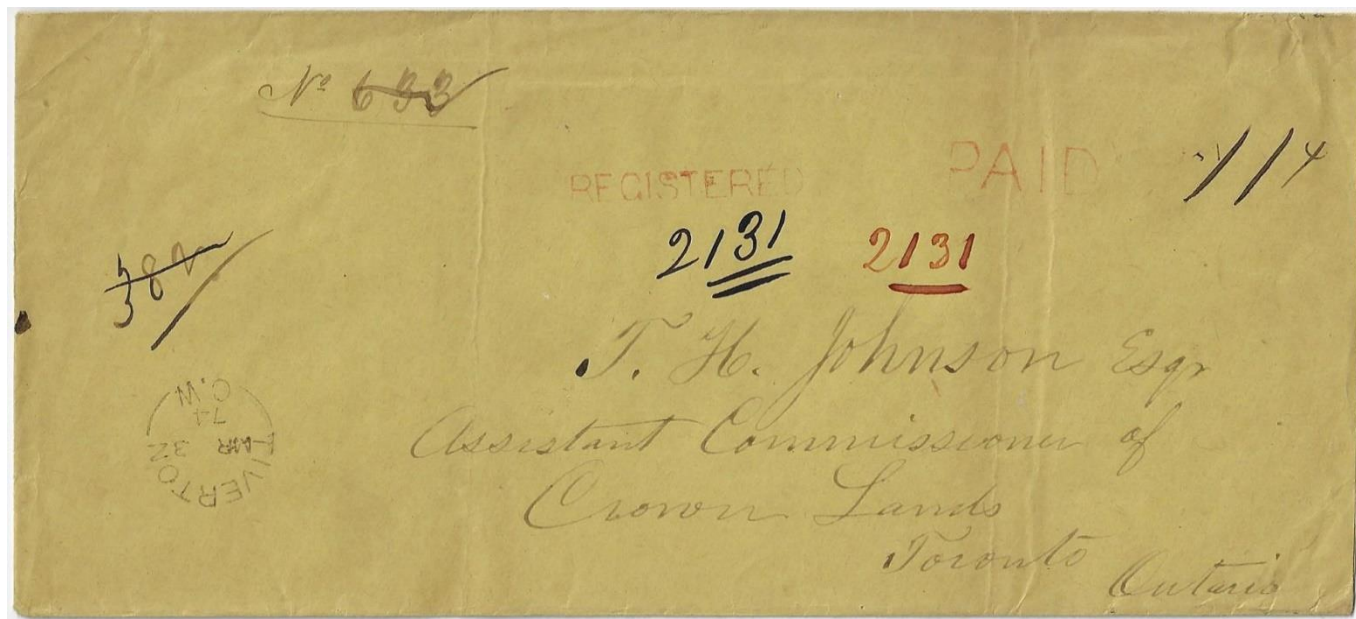 No 633
REGISTERED PAID
2131 2131
T. H. Johnson Esqr
Assistant Commissioner of
Crown Lands
Toronto Ontario
C.W
74